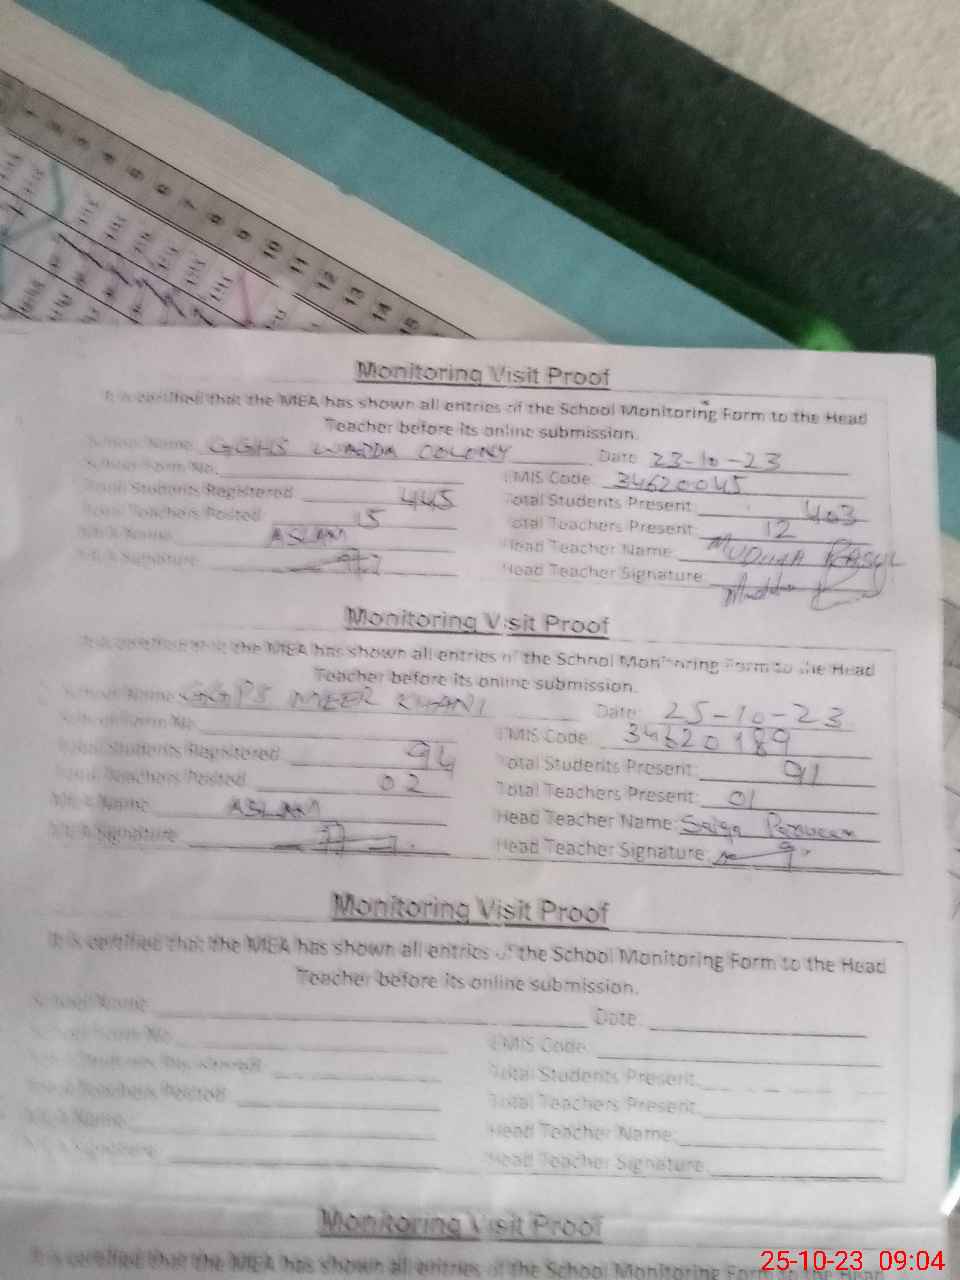 1 2 3 4 5 6 7 8 9 10 11 12 13 14 15
Monitoring Visit Proof
It is certified that the MEA has shown all entries of the School Monitoring Form to the Head
Teacher before its online submission.
School Name GGHS WAPDA COLONY Date 23-10-23
School Form No. EMIS Code 34620045
Total Students Registered 445 Total Students Present 403
Total Teachers Posted 15 Total Teachers Present 12
MEA Name ASLAM Head Teacher Name: RASUL
MEA Signature Head Teacher Signature
Monitoring Visit Proof
It is certified that the MEA has shown all entries of the School Monitoring Form to the Head
Teacher before its online submission.
School Name GGPS MEER KHANI Date: 25-10-23
School Form No EMIS Code 34620189
Total Students Registered 94 Total Students Present 91
Total Teachers Posted 02 Total Teachers Present: 01
MEA Name ASLAM Head Teacher Name: Saiqa Parveen
MEA Signature Head Teacher Signature:
Monitoring Visit Proof
It is certified that the MEA has shown all entries of the School Monitoring Form to the Head
Teacher before its online submission.
School Name Date:
School Form No. EMIS Code
Total Students Registered Total Students Present
Total Teachers Posted Total Teachers Present:
MEA Name Head Teacher Name:
MEA Signature Head Teacher Signature:
Monitoring Visit Proof
It is certified that the MEA has shown all entries of the School Monitoring Form to the Head
25-10-23 09:04